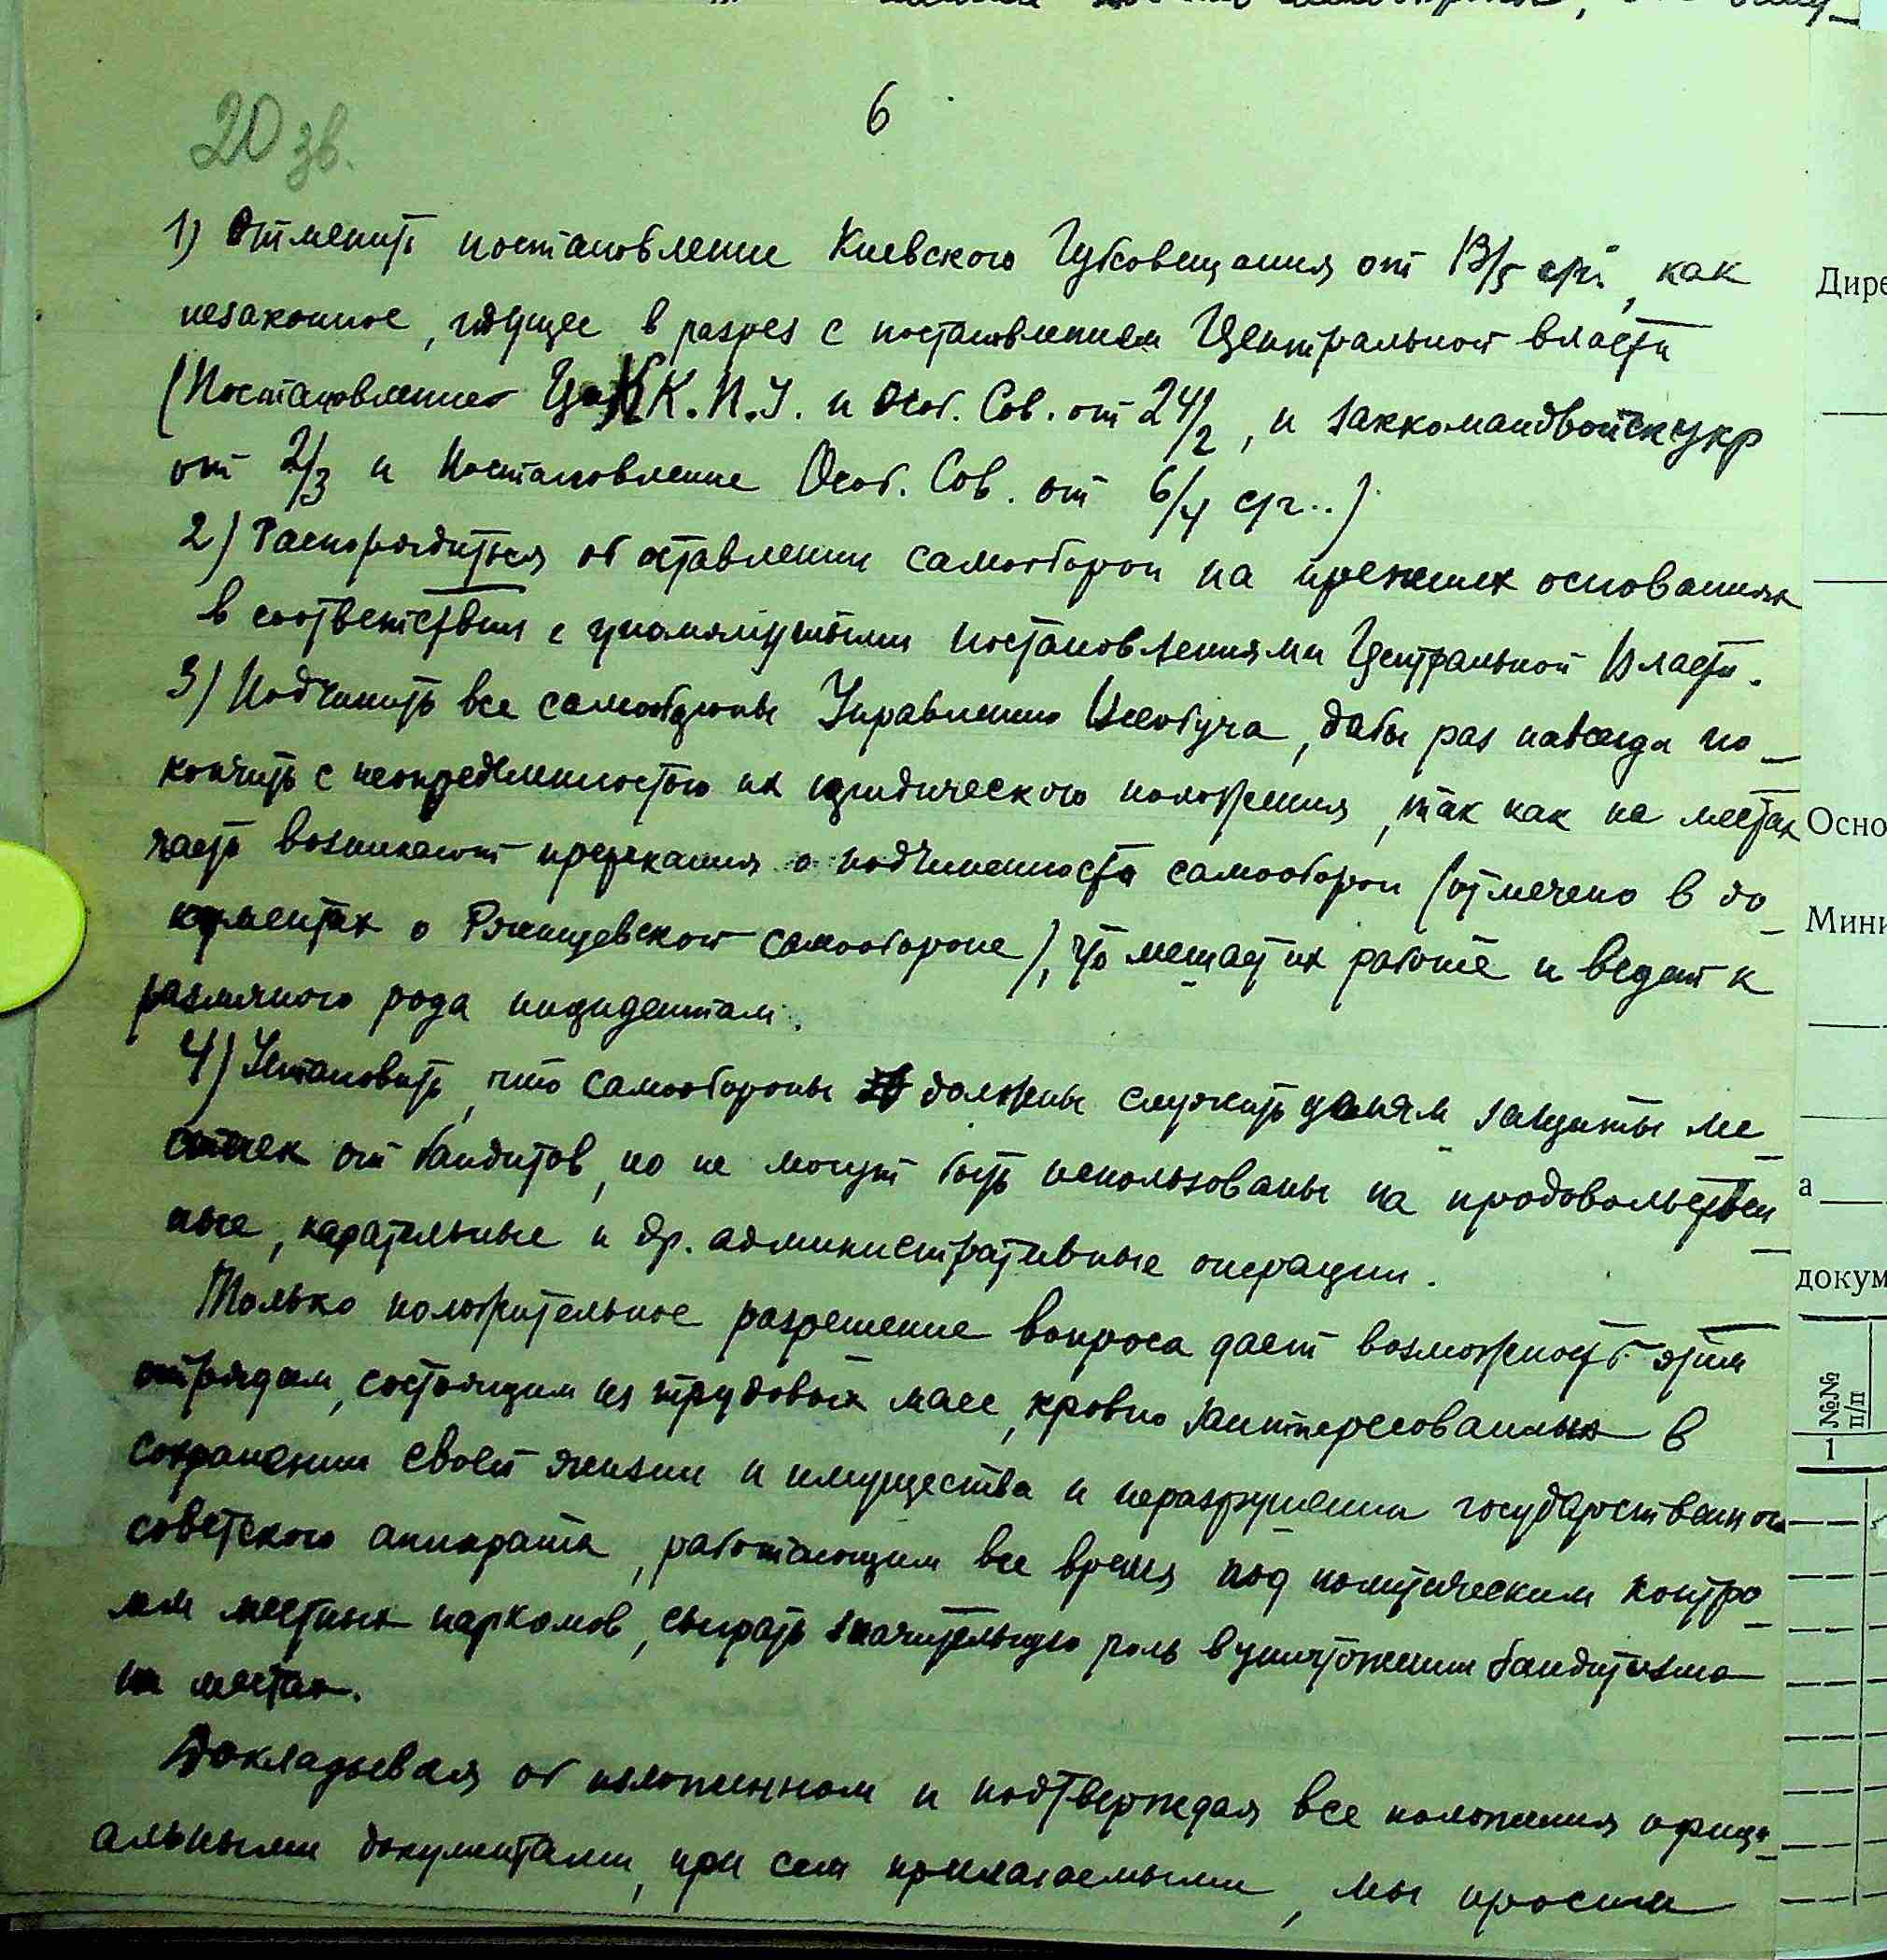 20 зв.
6
1) Отменить постановление Киевского Губсовещания от 13/5 с/г., как
незаконное, идущее в разрез с постановлением Центральной власти
(Постановление Ц К К.П.У. и Особ. Сов. от 24/2, и замкомандвойскукр
от 2/3 и Постановление Особ. Сов. от 6/4 с/г..)
2) Распорядиться об оставлении самооборон на прежних основаниях
в соответствии с упомянутыми постановлениями Центральной Власти.
3) Подчинить все самообороны Управлению Всевобуча, дабы раз навсегда по-
кончить с неопределенностью их юридического положения, так как на местах
часто возникают пререкания о подчиненности самооборон (отмечено в до-
кументах о Ржищевской самообороне), что мешает их работе и ведет к
различного рода инцидентам.
4) Установить, что самообороны должны служить целям защиты ме-
стечек от бандитов, но не могут быть использованы на продовольствен-
ные, карательные и др. административные операции.
Только положительное разрешение вопроса дает возможность этим
отрядам, состоящим из трудовых масс, кровно заинтересованных в
сохранении своей жизни и имущества и неразрушении государственного
советского аппарата, работающим все время под политическим контро-
лем местных паркомов, сыграть значительную роль в уничтожении бандитизма
на местах.
Докладывая об изложенном и подтверждая все положения офици-
альными документами, при сем прилагаемыми, мы просим
Дире
Осно
Мини
а
докум
№№
п/п
1